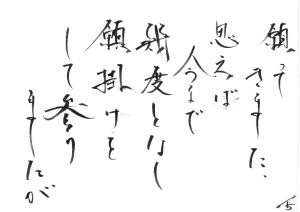 願って
きました。
思えば
今まで
幾度となく
願掛けを
して参り
ましたが